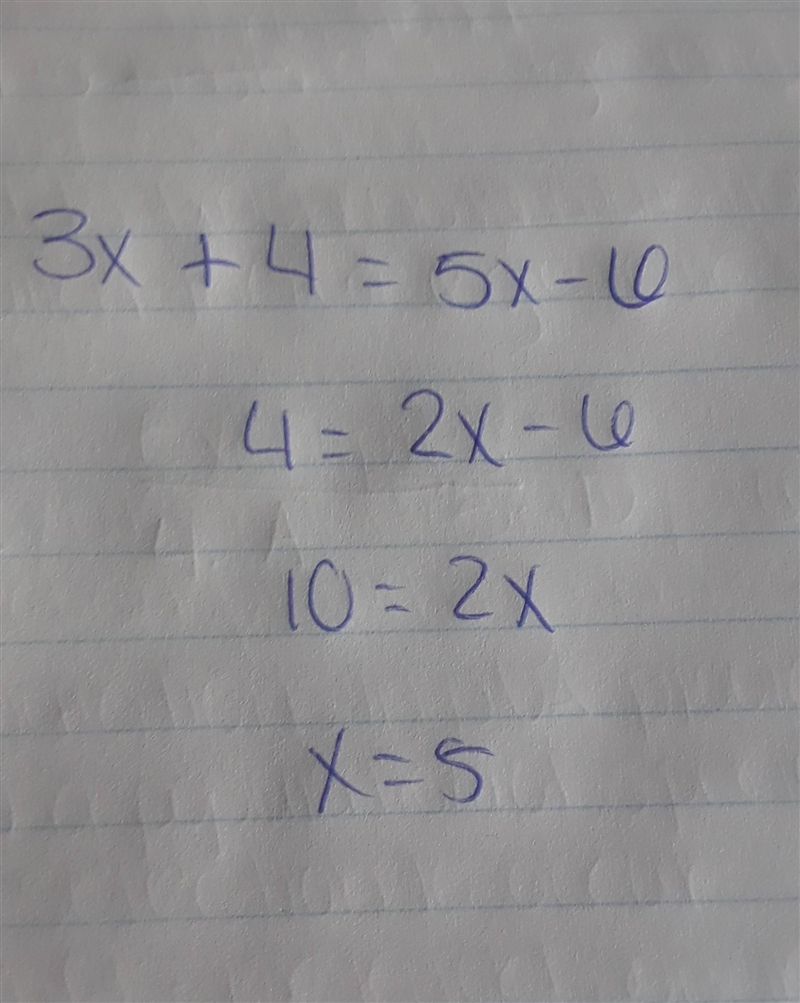 3x + 4 = 5x - 6
4 = 2x - 6
10 = 2x
x = 5